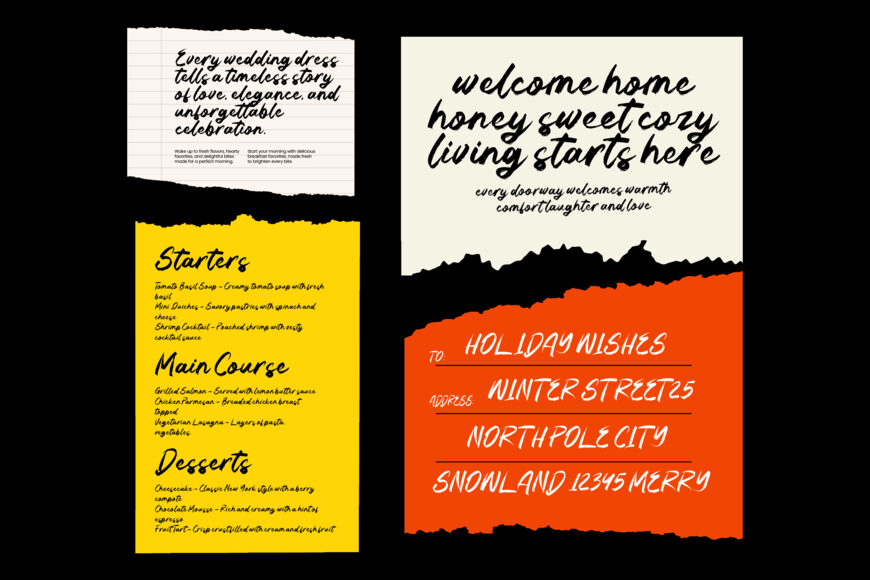 Every wedding dress
tells a timeless story
of love, elegance, and
unforgettable
celebration.
Wake up to fresh flavors, hearty
favorites, and delightful bites
made for a perfect morning.
Start your morning with delicious
breakfast favorites, made fresh
to brighten every bite.
Starters
Tomato Basil Soup – Creamy tomato soup with fresh
basil
Mini Quiches – Savory pastries with spinach and
cheese
Shrimp Cocktail – Poached shrimp with zesty
cocktail sauce
Main Course
Grilled Salmon – Served with lemon butter sauce
Chicken Parmesan – Breaded chicken breast
topped
Vegetarian Lasagna – Layers of pasta,
vegetables.
Desserts
Cheesecake – Classic New York style with a berry
compote
Chocolate Mousse – Rich and creamy with a hint of
espresso
Fruit Tart – Crisp crust filled with cream and fresh fruit
welcome home
honey sweet cozy
living starts here
every doorway welcomes warmth
comfort laughter and love
TO: HOLIDAY WISHES
ADDRESS: WINTER STREET 25
NORTH POLE CITY
SNOWLAND 12345 MERRY